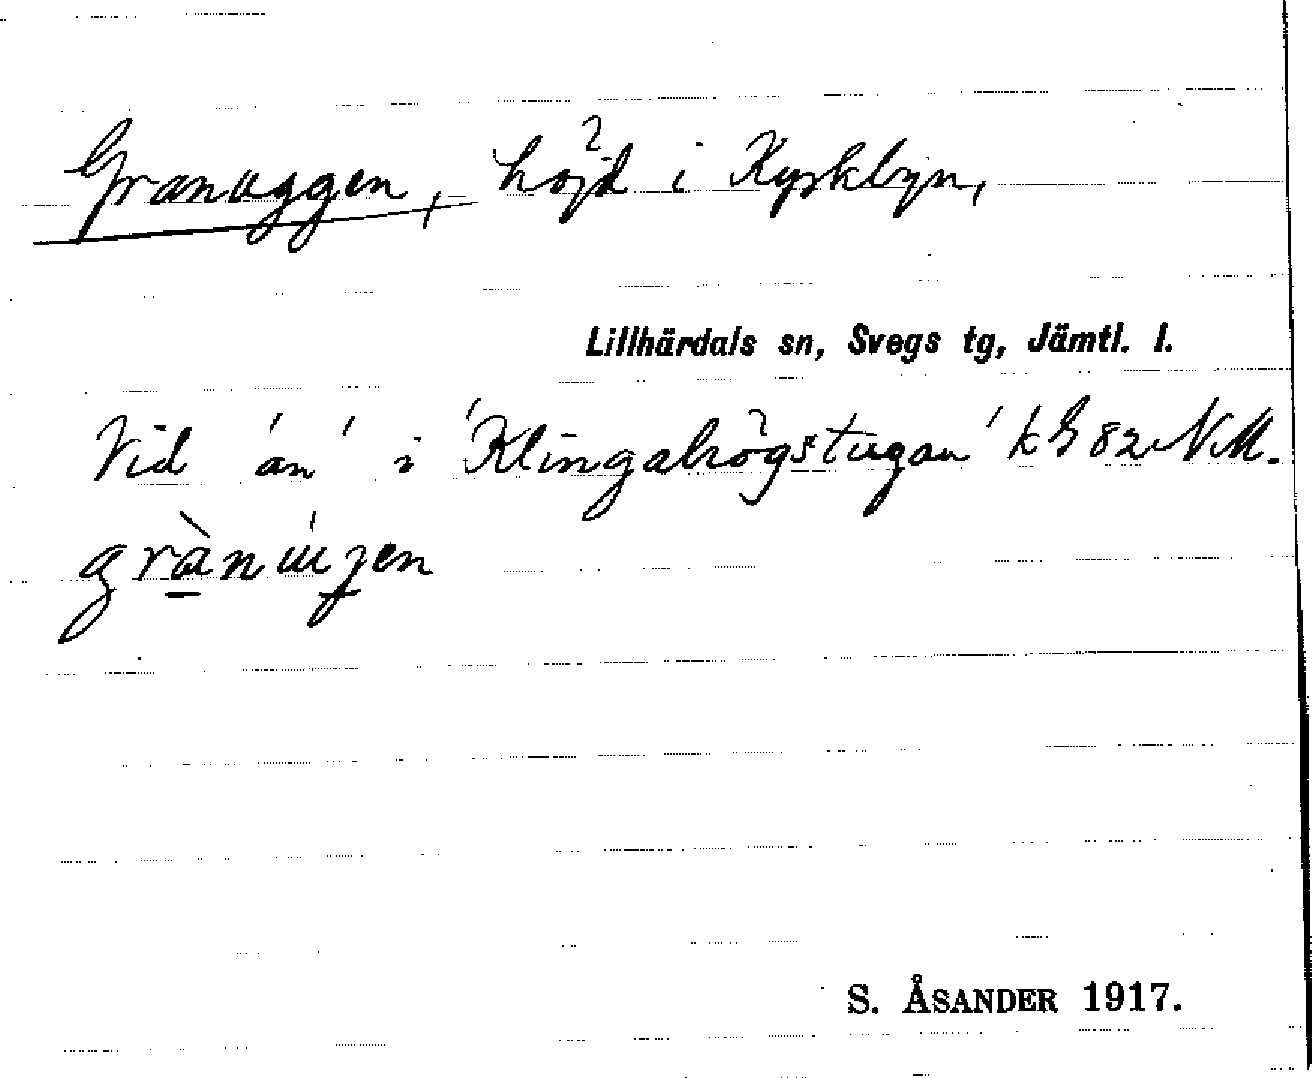 Granuggen, höjd i Kyrkbyn,
Lillhärdals sn, Svegs tg, Jämtl. l.
Vid 'an' i 'Klingahögstugan' k G 82 NM.
grànuʒen
S. ÅSANDER 1917.